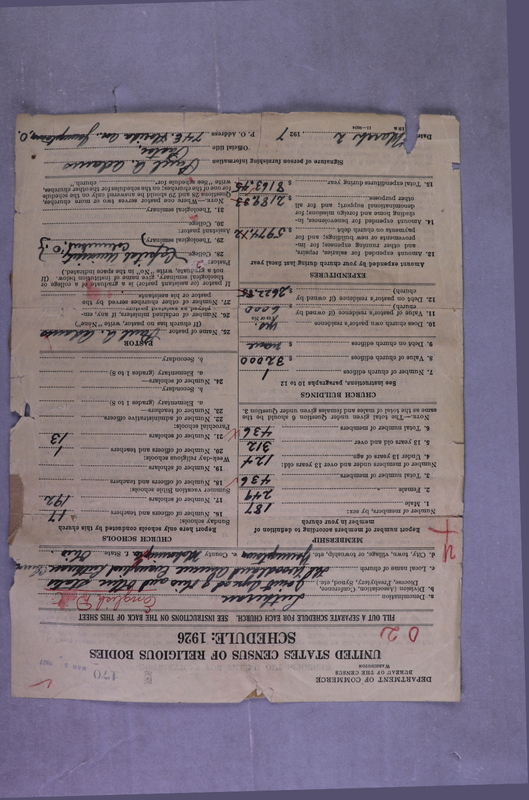 DEPARTMENT OF COMMERCE
BUREAU OF THE CENSUS
WASHINGTON
170
UNITED STATES CENSUS OF RELIGIOUS BODIES
SCHEDULE: 1926
FILL OUT A SEPARATE SCHEDULE FOR EACH CHURCH. SEE INSTRUCTIONS ON THE BACK OF THIS SHEET
a. Denomination Lutheran
b. Division (Association, Conference, Diocese, Presbytery, Synod, etc.) Joint Synod of Ohio and Other States
c. Local name of church
d. City, town, village, or township, etc. Youngstown e. County Mahoning f. State Ohio
MEMBERSHIP
Report number of members according to definition of member in your church
Number of members, by sex:
1. Male 187
2. Female 249
3. Total number of members 436
Number of members under and over 13 years old:
4. Under 13 years of age 124
5. 13 years old and over 312
6. Total number of members 436
Note.—The total given under Question 6 should be the same as the total of males and females given under Question 3.
CHURCH BUILDINGS
See instructions, paragraphs 10 to 12
7. Number of church edifices 1
8. Value of church edifices $ 32000
9. Debt on church edifices $ none
10. Does church own pastor's residence yes
11. Value of pastor's residence (if owned by church) $ 6000
12. Debt on pastor's residence (if owned by church) $ 2622.85
EXPENDITURES
Amount expended by your church during last fiscal year
13. For salaries, repairs, etc.; for all running expenses; for improvements or new building; and for payments on church debt $ 5974.12
14. Amount expended for benevolences, including home and foreign missions; for denominational support; and for all other purposes $ 2189.33
15. Total expenditures during year $ 8163.45
CHURCH SCHOOLS
Report here only schools conducted by this church
Sunday schools:
16. Number of officers and teachers 17
17. Number of scholars 192
Summer vacation Bible schools:
18. Number of officers and teachers
19. Number of scholars
Week-day religious schools:
20. Number of officers and teachers 1
21. Number of scholars 13
Parochial schools:
22. Number of administrative officers
23. Number of teachers—
a. Elementary (grades 1 to 8)
b. Secondary
24. Number of scholars—
a. Elementary (grades 1 to 8)
b. Secondary
PASTOR
25. Name of pastor Paul A. Adams
(If church has no pastor, write "None")
26. Number of ordained ministers, if any, employed as assistant pastors
27. Number of other churches served by the pastor or his assistants
If pastor or assistant pastor is a graduate of a college or theological seminary, give name of institution below. (If not a graduate, write "No" in the space indicated.)
Pastor:
28. College Capital University
29. Theological seminary Columbus, O.
Assistant pastor:
30. College
31. Theological seminary
Signature of person furnishing information Paul A. Adams
Official title Pastor
Date March 2, 1927 P. O. Address